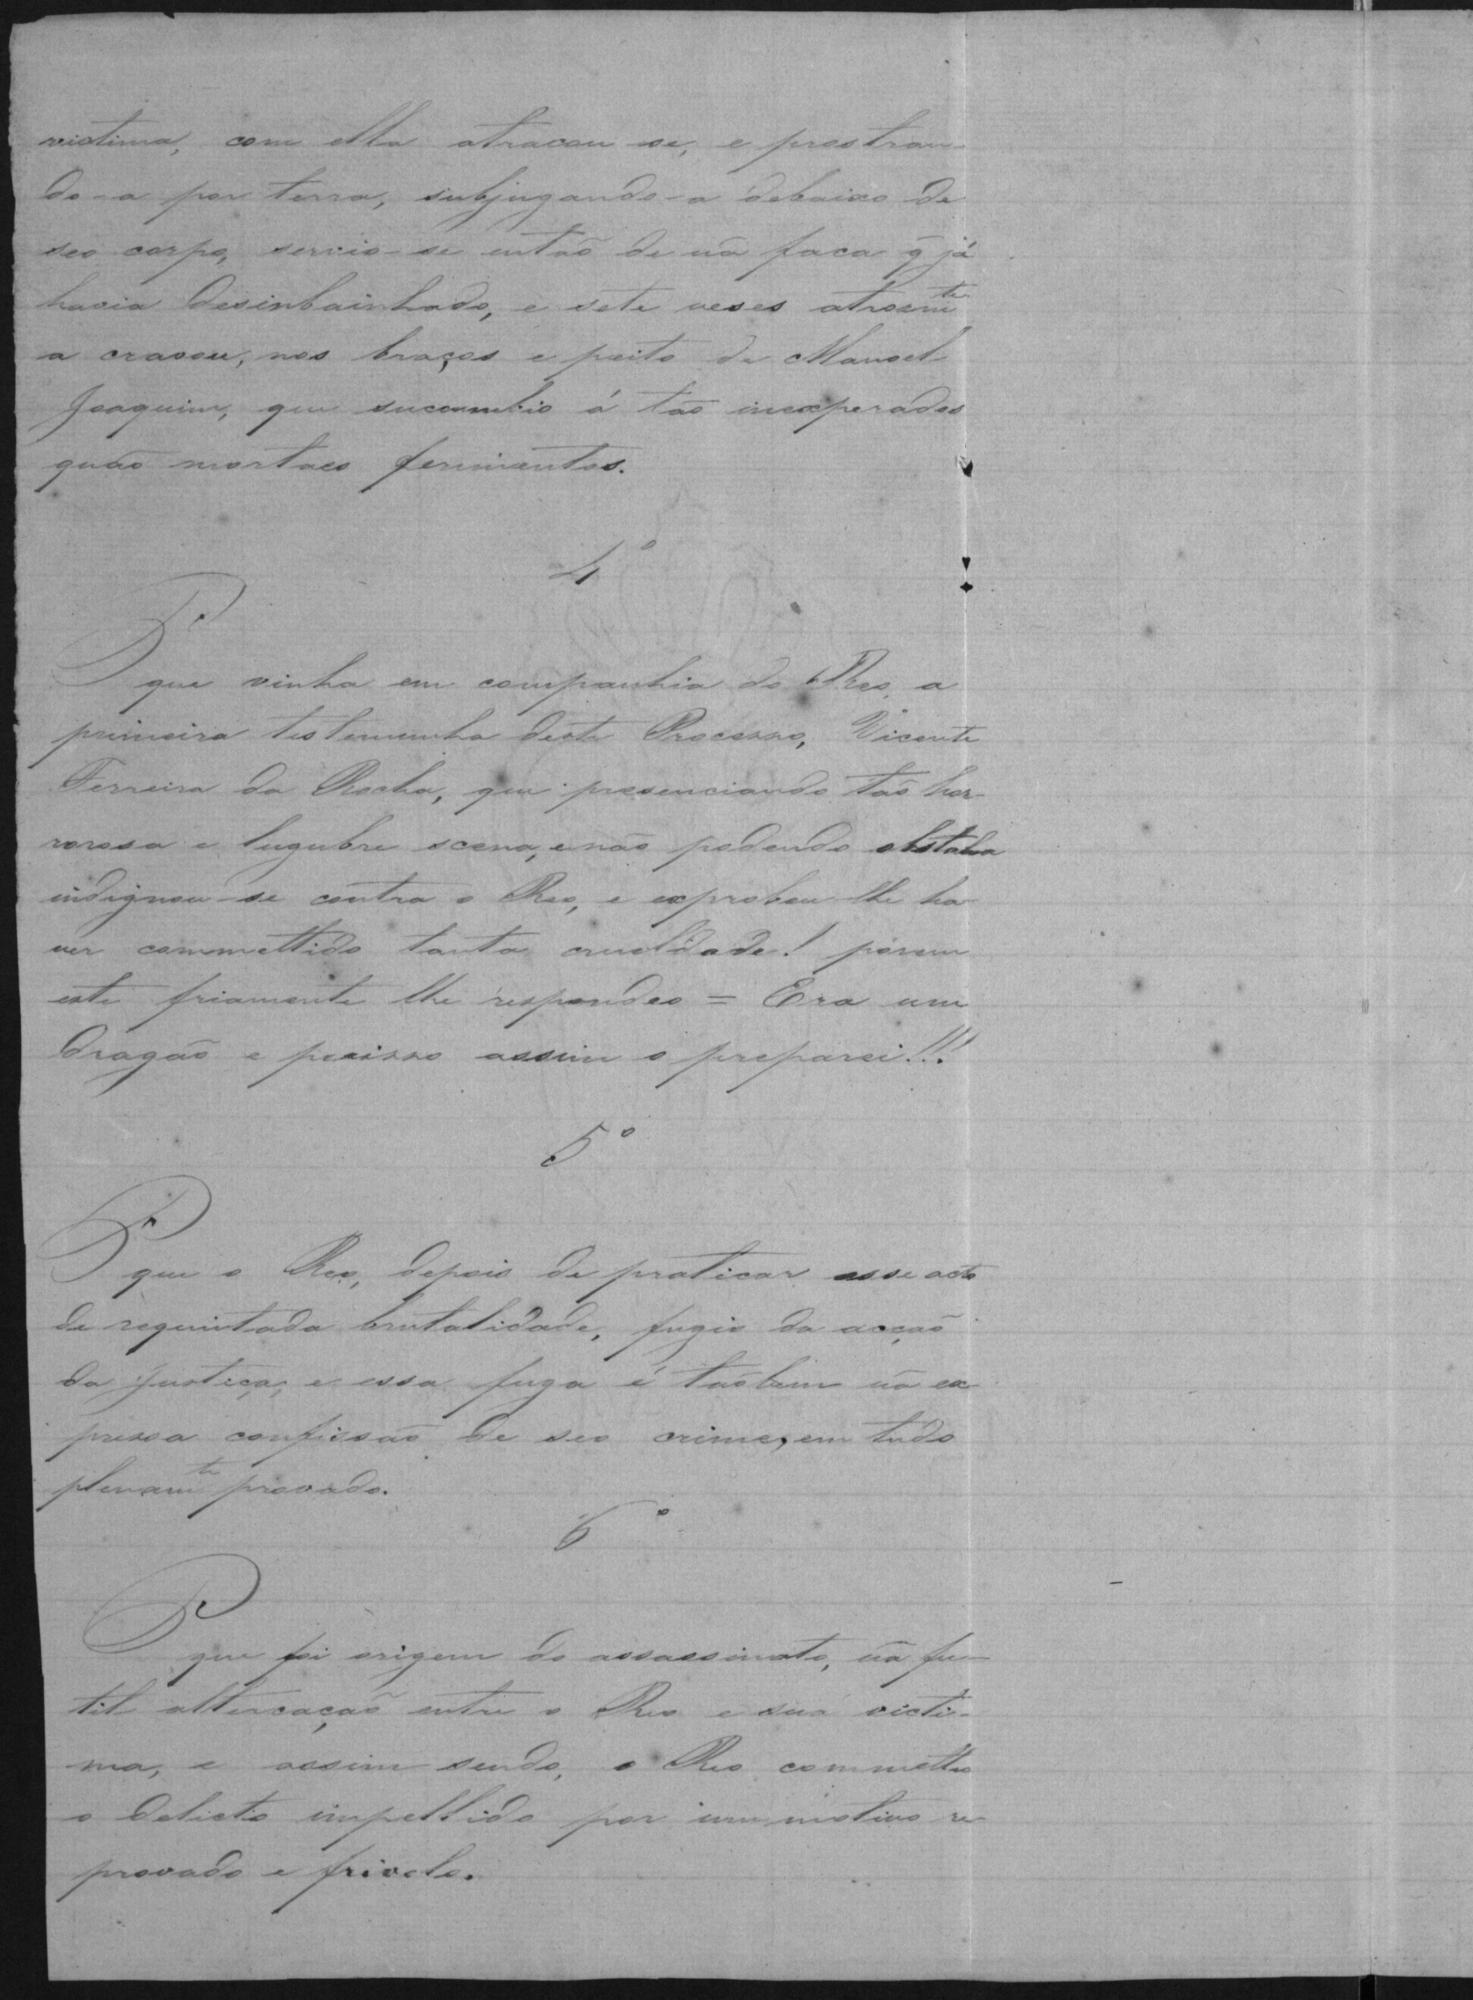 victima, com ella atracou-se, e prostran-
do-a por terra, subjugando-a debaixo de
seo corpo, servio-se então de uã faca q̃ já
havia desinbainhado, e sete veses atrozmte
a cravou, nos braços e peito de Manoel
Joaquim, que succumbio á tão inexperados
quão mortaes ferimentos.
4º
P
que vinha em companhia do Reo, a
primeira testemunha deste Processo, Vicente
Ferreira da Rocha, que presenciando tão hor-
rorosa e lugubre scena, e não podendo obstala
indignou-se contra o Reo, e exprobou-lhe ha-
ver commettido tanta crueldade! porem
este friamente lhe respondeo = Era um
dragão e porisso assim o preparei!!!
5º
P
que o Reo, depois de praticar esse acto
de requintada brutalidade, fugio da acção
da justiça, e essa fuga é tãobem uã ex-
pressa confissão de seo crime, em tudo
plenamte provado.
6º
P
que foi origem do assassinato, uã fu-
til altercação entre o Reo e sua victi-
ma, e assim sendo, o Reo commetteo
o delicto impellido por um motivo re-
provado e frivolo.